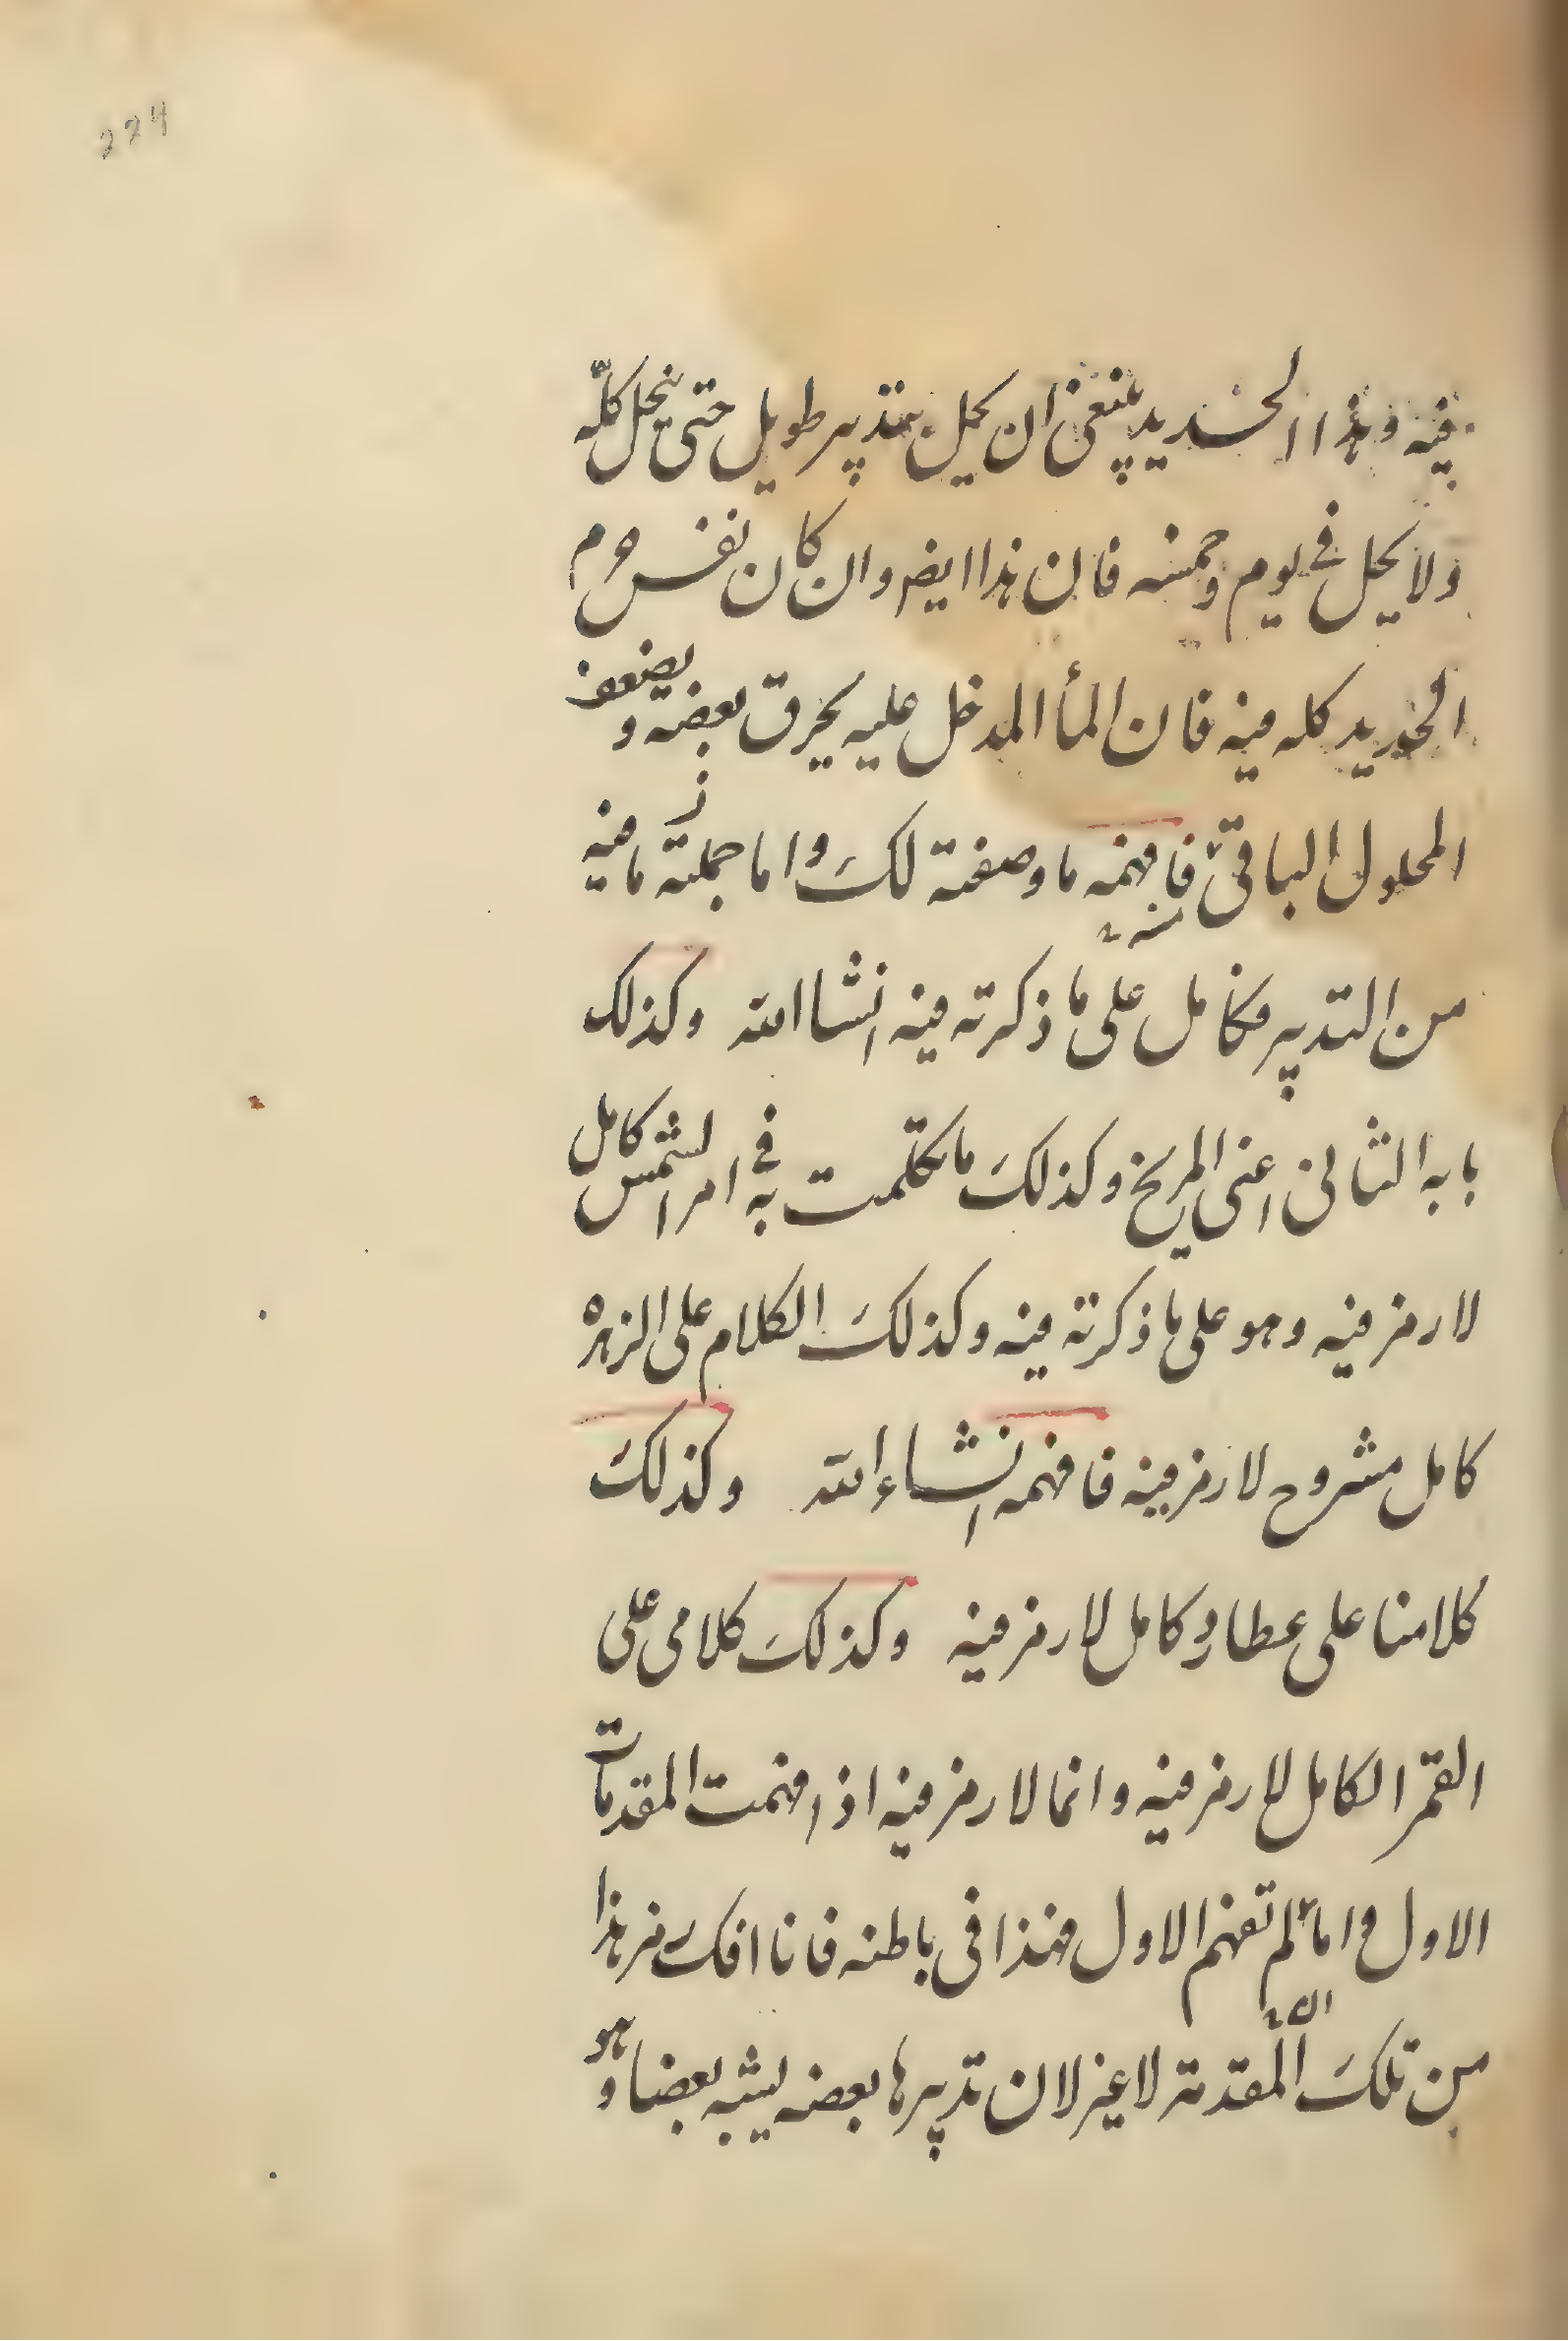 224
فيه وهذا الحديد ينبغى ان يحل بتدبير طويل حتى ينحل كلّه
ولا يحل فى يوم وخمسه فان هذا ايضا وان كان نفس وم
الحديد كله فيه فان المأ المدخل عليه يحرق بعضه ويضعف
المحلول الباقى فافهمه ما وصفته لك واما جملته ما فيه
من التدبير فكامل على ما ذكرته فيه انشا الله وكذلك
بابه الثانى اعنى المريخ وكذلك ما تكلمت به فى امر الشمس كامل
لا رمز فيه وهو على ما ذكرته فيه وكذلك الكلام على الزهره
كامل مشروح لا رمز فيه فافهمه انشاء الله وكذلك
كلامنا على عطارد كامل لا رمز فيه وكذلك كلامى على
القمر الكامل لا رمز فيه وانما لا رمز فيه اذا فهمت المقدمات
الاول واما لم تفهم الاول فهذا فى باطنه فانا افك رمز هذا
من تلك المقدمة لا غير لان تدبيرها بعضه يشبه بعضا وهو